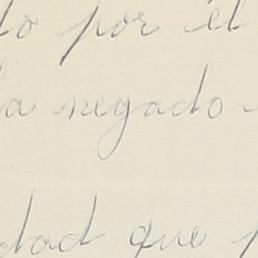 to por el
a negado
dad que